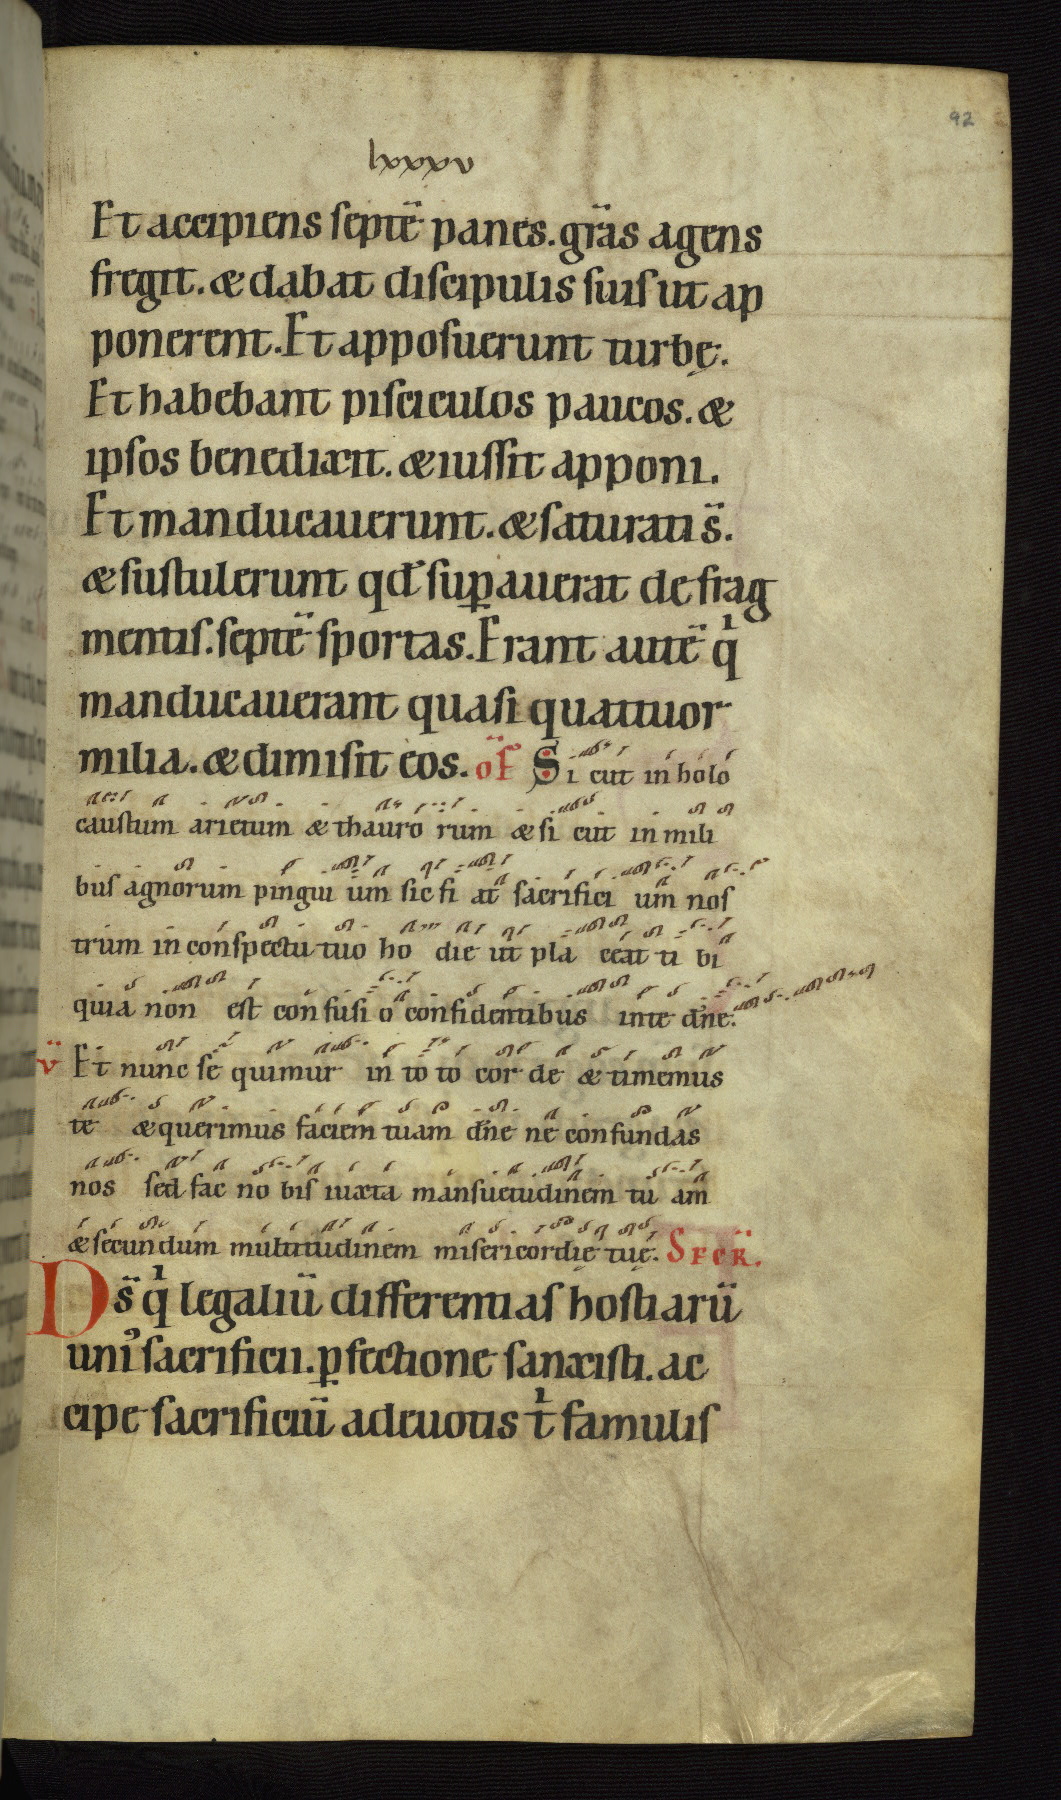 92
lxxxv
Et accipiens septē panes. grās agens
fregit. & dabat discipulis suis ut ap
ponerent. Et apposuerunt turbę.
Et habebant pisciculos paucos. &
ipsos benedixit. & iussit apponi.
Et manducauerunt. & saturati s̄.
& sustulerunt qđ suꝑauerat de frag
mentis. septē sportas. Erant autē qⁱ
manducauerant quasi quattuor
milia. & dimisit eos. of̄ Si cut in holo
caustum arietum & thauro rum & si cut in mili
bus agnorum pingui um sic fi at sacrifici um nos
trum in conspectu tuo ho die ut pla ceat ti bi
quia non est confusi o confidentibus in te dn̄e.
v̄ Et nunc se quimur in to to cor de & timemus
te & querimus faciem tuam dn̄e ne confundas
nos sed fac no bis iuxta mansuetudinem tu am
& secundum multitudinem misericordię tuę. Secr̄.
Ds̄ qⁱ legaliū differentias hostiarū
uniꝰ sacrificii. ꝑfectione sanxisti. ac
cipe sacrificiū a deuotis tⁱ famulis